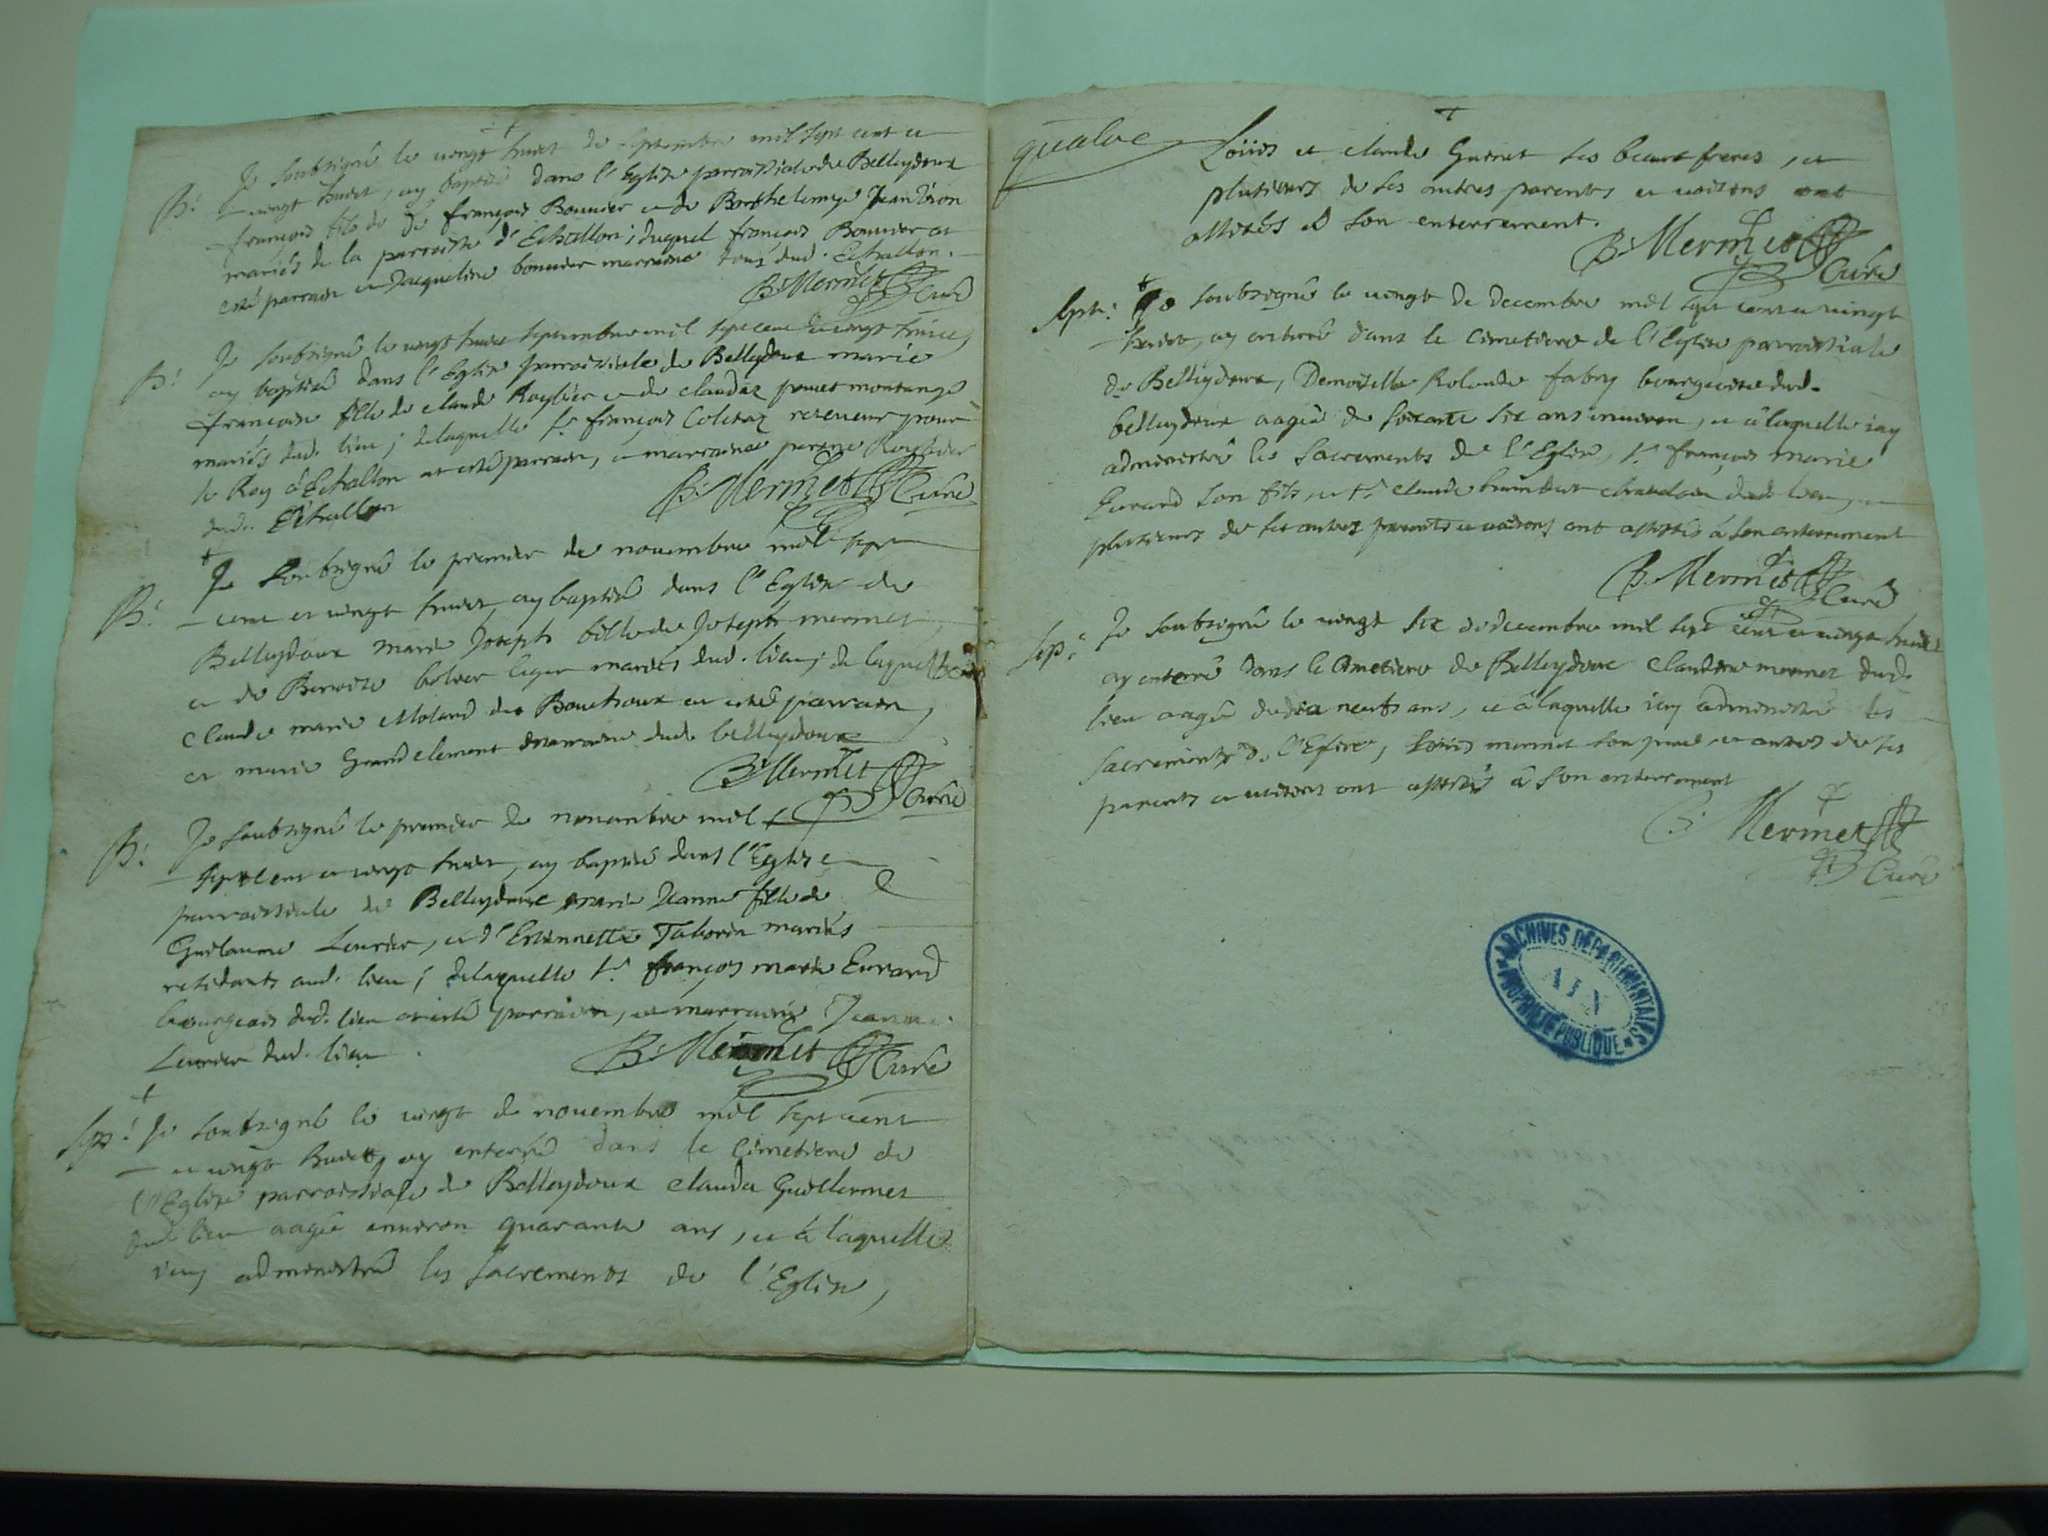 Je soubsigné le vingt huict de septembre mil sept cent et
B: vingt huict, ay baptisé dans l'Eglise parroissiale de Belleydoux
françois fils de françois Bonnier et de Berthelemye Jeantion
mariés de la parroisse d'Echallon; duquel françois Bonnier at
esté parrain et Jacqueline bonnier marraine tous dud. Echallon.
B: Mermet Curé
Je soubsigné le vingt huict septembre mil sept cent et vingt huict,
B: ay baptisé dans l'Eglise parroissiale de Belleydoux marie
françoise fille de claude et de claudaz
mariés dud. lieu; delaquelle sr. françois receveur pour
le Roy à Echallon at esté parrain, et marraine
dud. Echallon
B: Mermet Curé
Je soubsigné le premier de novembre mil sept
B: cent et vingt huict, ay baptisé dans l'Eglise de
Belleydoux marie Joseph fille de Joseph mermet
et de Benoite mariés dud. lieu; de laquelle
claude marie Molard des Bouchoux at esté parrain,
et marie Grandclement marraine dud. belleydoux
B: Mermet Curé
B: Je soubsigné le premier de novembre mil
sept cent et vingt huict, ay baptisé dans l'Eglise
parroissiale de Belleydoux marie Jeanne fille de
Guilaume Levrier, et d'Estiennette Taborin mariés
residants aud. lieu; delaquelle sr. françois marie Evrard
bourgeois dud. lieu at esté parrain, et marraine Jeanne
Levrier dud. lieu.
B: Mermet Curé
Sep: Je soubsigné le vingt de novembre mil sept cent
et vingt huict, ay enterré dans le Cimetiere de
l'Eglise parroissiale de Belleydoux claudaz Guillermet
dud. lieu aagée environ quarante ans, et à laquelle
i'ay administré les sacrements de l'Eglise,
quatre
Loüis et claude ses beaux freres, et
plusieurs de ses autres parents et voisins ont
assistés à son enterrement.
B: Mermet Curé
Sept: Je soubsigné le vingt de decembre mil sept cent et vingt
huict, ay enterré dans le cimetiere de l'Eglise parroissiale
de Belleydoux, Demoiselle Rolande fabry bourgeoise dud.
belleydoux aagée de soixante six ans environ, et à laquelle i'ay
administré les sacrements de l'Eglise, sr. françois marie
Evrard son fils, et sr. claude chatelain dud. lieu, et
plusieurs de ses autres parents et voisins ont assistés à son enterrement
B: Mermet Curé
Sep: Je soubsigné le vingt six de decembre mil sept cent et vingt huict
ay enterré dans le cimetiere de Belleydoux claudine mermet dud.
lieu aagée de dix neufs ans, et à laquelle i'ay administré les
sacrements de l'Eglise, Loüis mermet son et autres de ses
parents et voisins ont assistés à son enterrement
B: Mermet
Curé
ARCHIVES DÉPARTEMENTALES
AIN
PROPRIÉTÉ PUBLIQUE